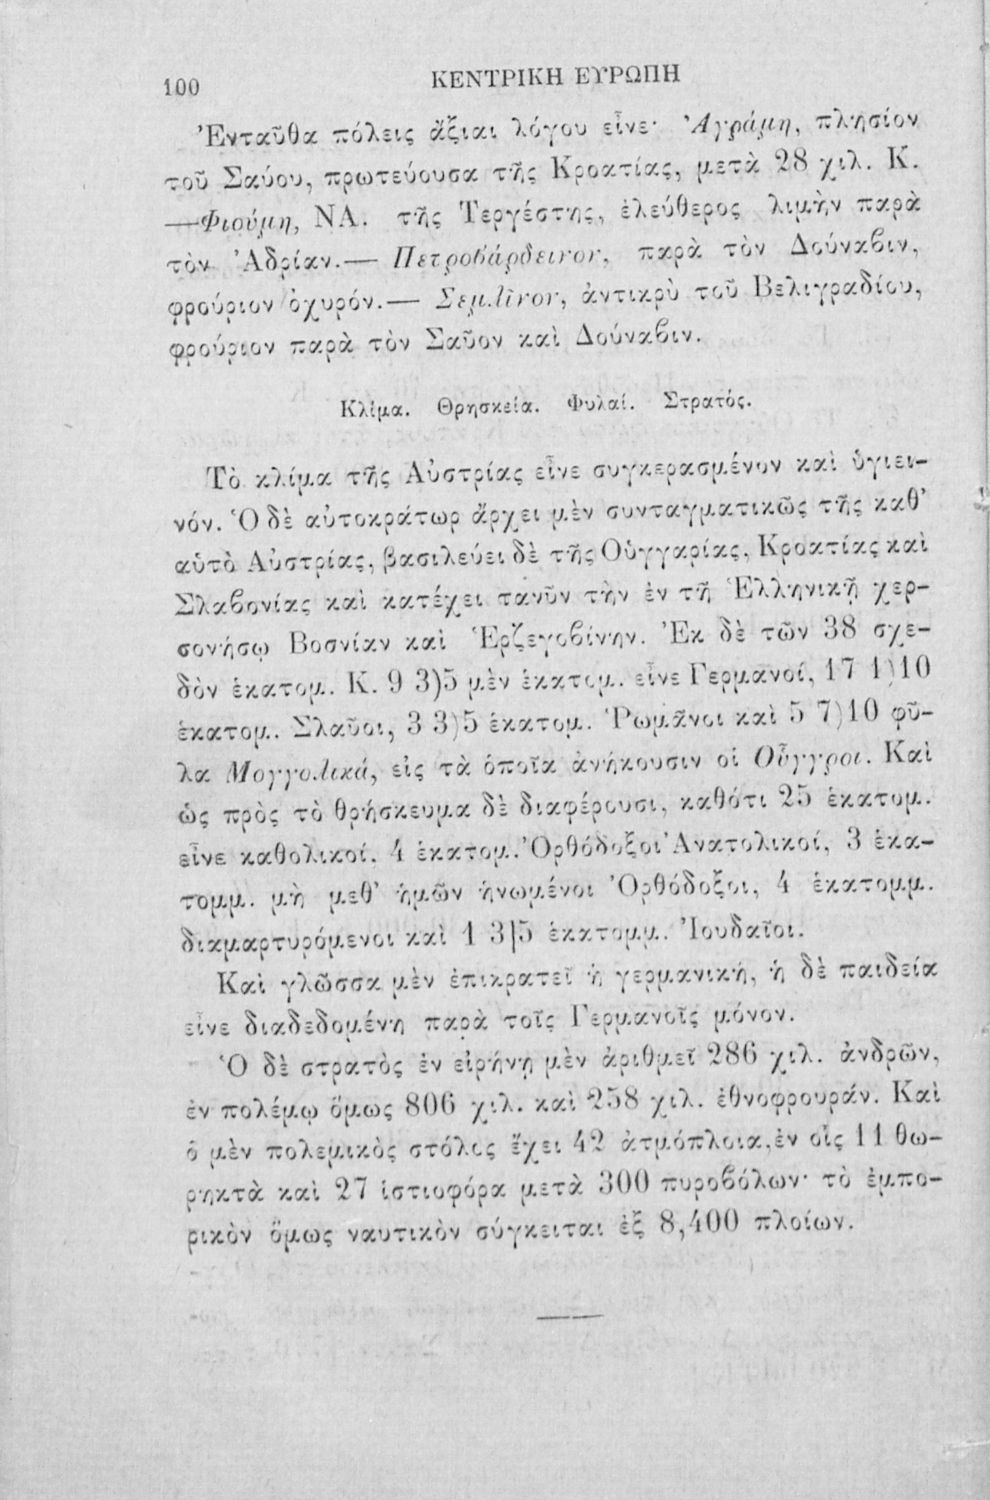 100
ΚΕΝΤΡΙΚΗ ΕΥΡΩΠΗ
Ἐνταῦθα πόλεις ἄξιαι λόγου εἶνε· Ἀγράμη, πλησίον
τοῦ Σαύου, πρωτεύουσα τῆς Κροατίας, μετὰ 28 χιλ. Κ.
—Φιούμη, ΝΑ. τῆς Τεργέστης, ἐλεύθερος λιμὴν παρὰ
τὸν Ἀδρίαν.— Πετροβάρδεινον, παρὰ τὸν Δούναβιν,
φρούριον ὀχυρόν.— Σεμλῖνον, ἀντικρὺ τοῦ Βελιγραδίου,
φρούριον παρὰ τὸν Σαῦον καὶ Δούναβιν.
Κλίμα. Θρησκεία. Φυλαί. Στρατός.
Τὸ κλίμα τῆς Αὐστρίας εἶνε συγκερασμένον καὶ ὑγιει-
νόν. Ὁ δὲ αὐτοκράτωρ ἄρχει μὲν συνταγματικῶς τῆς καθ’
αὑτὸ Αὐστρίας, βασιλεύει δὲ τῆς Οὑγγαρίας, Κροατίας καὶ
Σλαβονίας καὶ κατέχει τανῦν τὴν ἐν τῇ Ἑλληνικῇ χερ-
σονήσῳ Βοσνίαν καὶ Ἑρζεγοβίνην. Ἐκ δὲ τῶν 38 σχε-
δὸν ἑκατομ. Κ. 9 3)5 μὲν ἑκατομ. εἶνε Γερμανοί, 17 1)10
ἑκατομ. Σλαῦοι, 3 3)5 ἑκατομ. Ῥωμᾶνοι καὶ 5 7)10 φῦ-
λα Μογγολικά, εἰς τὰ ὁποῖα ἀνήκουσιν οἱ Οὗγγροι. Καὶ
ὡς πρὸς τὸ θρήσκευμα δὲ διαφέρουσι, καθότι 25 ἑκατομ.
εἶνε καθολικοί. 4 ἑκατομ. Ὀρθόδοξοι Ἀνατολικοί, 3 ἑκα-
τομμ. μὴ μεθ’ ἡμῶν ἡνωμένοι Ὀρθόδοξοι, 4 ἑκατομμ.
διαμαρτυρόμενοι καὶ 1 3|5 ἑκατομμ. Ἰουδαῖοι.
Καὶ γλῶσσα μὲν ἐπικρατεῖ ἡ γερμανική, ἡ δὲ παιδεία
εἶνε διαδεδομένη παρὰ τοῖς Γερμανοῖς μόνον.
Ὁ δὲ στρατὸς ἐν εἰρήνῃ μὲν ἀριθμεῖ 286 χιλ. ἀνδρῶν,
ἐν πολέμῳ ὅμως 806 χιλ. καὶ 258 χιλ. ἐθνοφρουράν. Καὶ
ὁ μὲν πολεμικὸς στόλος ἔχει 42 ἀτμόπλοια, ἐν οἷς 11 θω-
ρηκτὰ καὶ 27 ἱστιοφόρα μετὰ 300 πυροβόλων· τὸ ἐμπο-
ρικὸν ὅμως ναυτικὸν σύγκειται ἐξ 8,400 πλοίων.